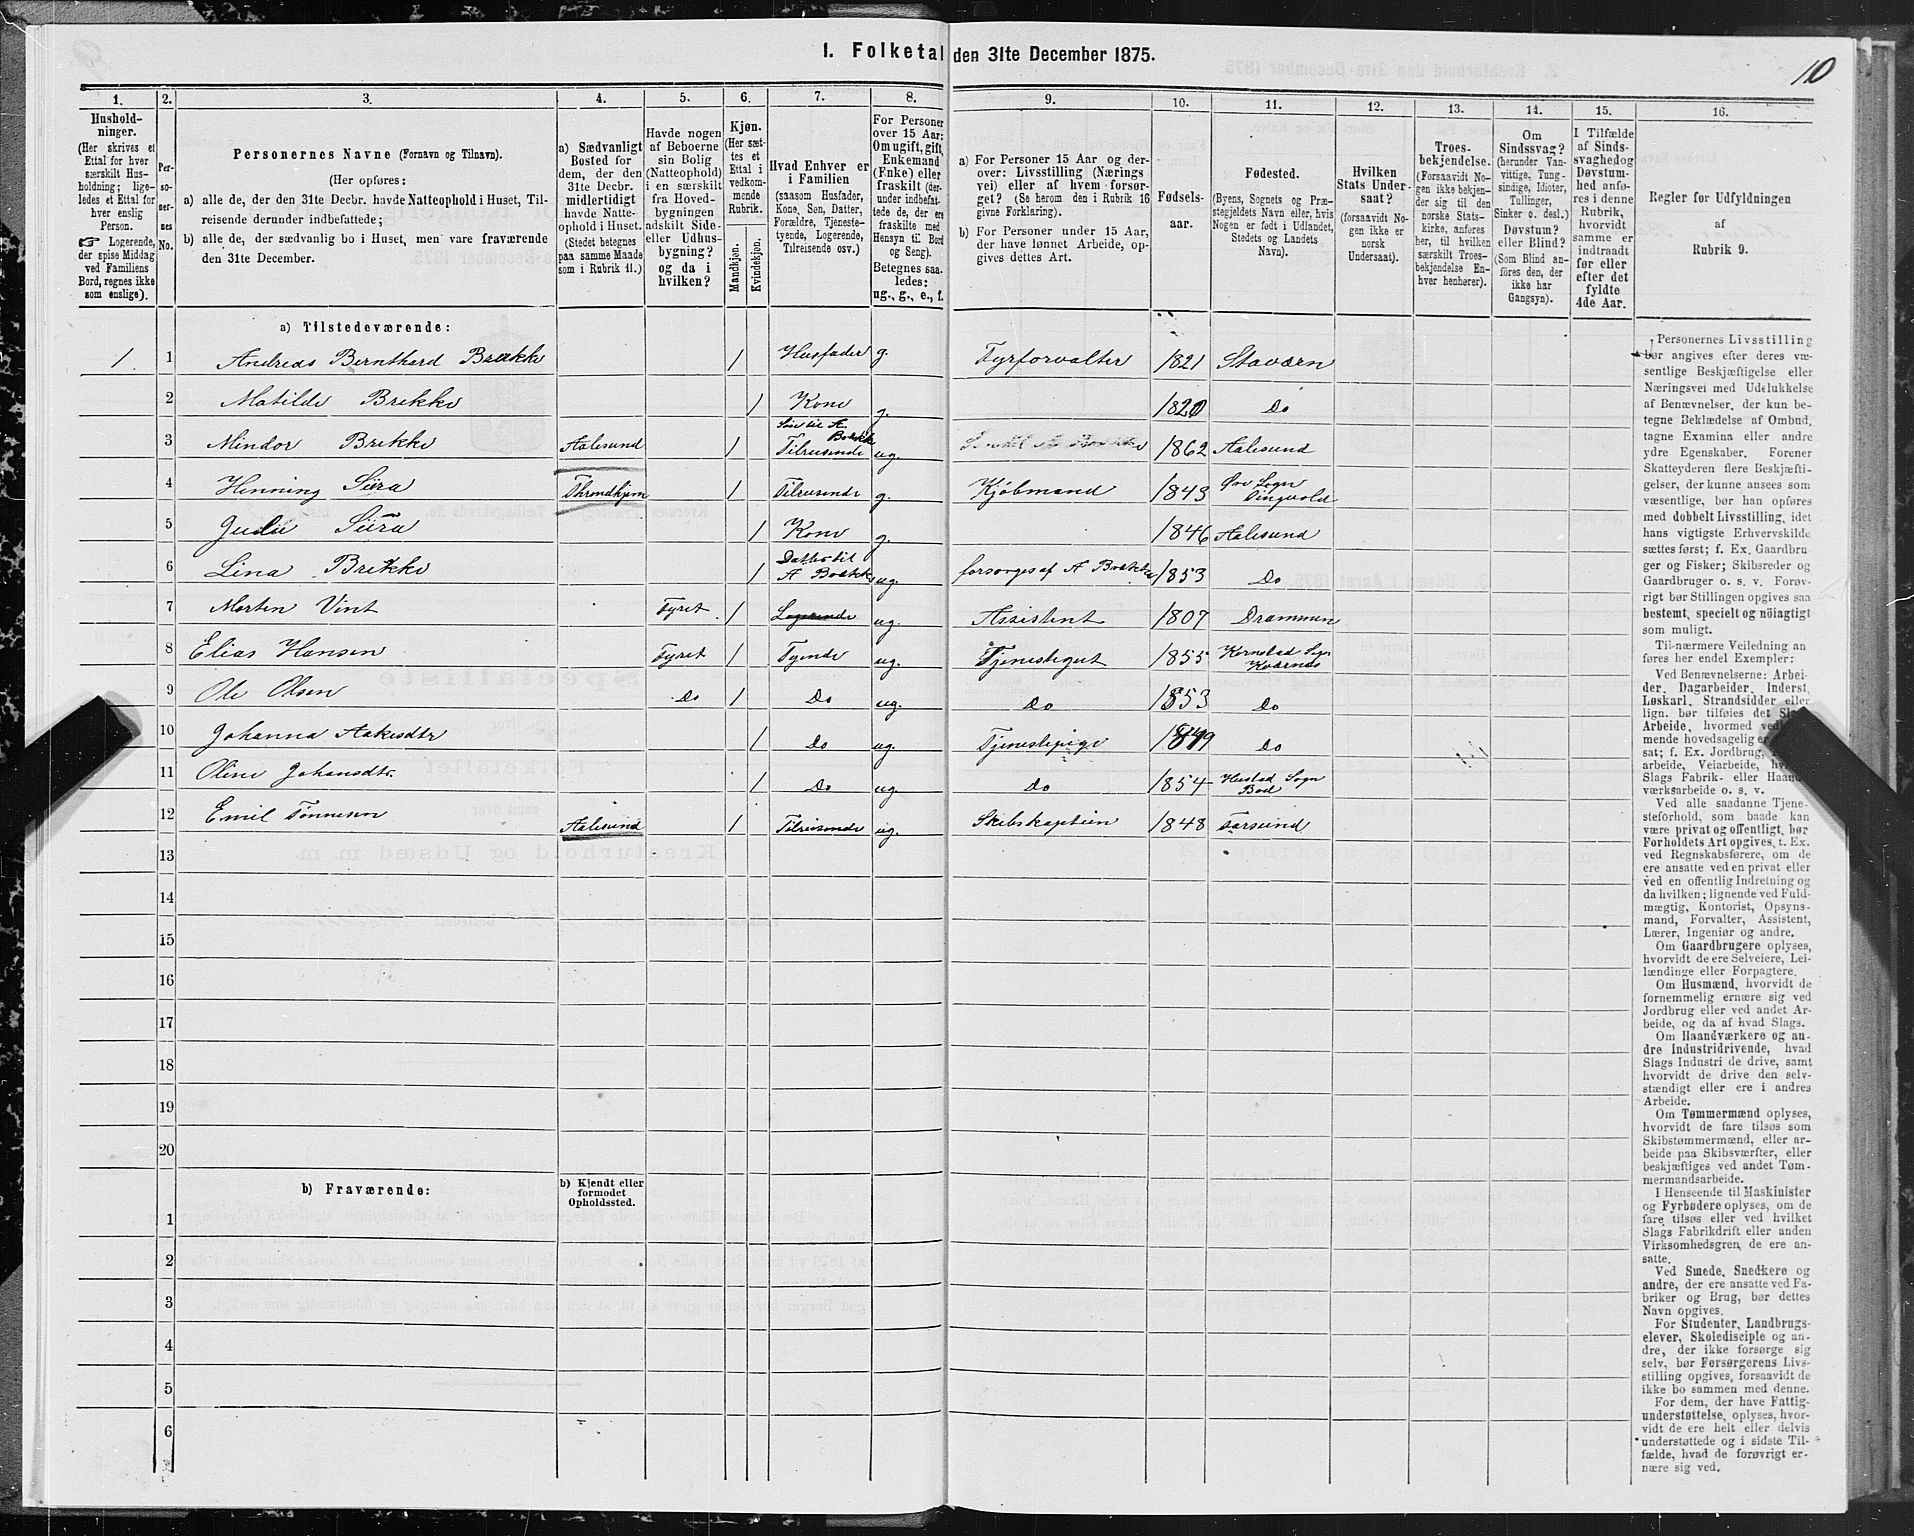 1. Folketal den 31te December 1875.
10
1.
2.
3.
4.
5.
6.
7.
8.
9.
10.
11.
12.
13.
14.
15.
16.
Hushold-
ninger.
(Her skrives et
Ettal for hver
særskilt Hus-
holdning; lige-
ledes et Ettal for
hver enslig
Person.
☞ Logerende,
der spise Middag
ved Familiens
Bord, regnes ikke
som enslige).
Per-
so-
ner-
nes
No.
Personernes Navne (Fornavn og Tilnavn).
(Her opføres:
a) alle de, der den 31te Decbr. havde Natteophold i Huset, Til-
reisende derunder indbefattede;
b) alle de, der sædvanlig bo i Huset, men vare fraværende
den 31te December.
a) Sædvanligt
Bosted for
dem, der den
31te Decbr.
midlertidigt
havde Natte-
ophold i Huset.
(Stedet betegnes
paa samme Maade
som i Rubrik 11.)
Havde nogen
af Beboerne
sin Bolig
(Natteophold)
i en særskilt
fra Hoved-
bygningen
adskilt Side-
eller Udhus-
bygning?
og da i
hvilken?
Kjøn.
(Her sæt-
tes et
Ettal i
vedkom-
mende
Rubrik.
Mandkjøn.
Kvindekjøn.
Hvad Enhver er
i Familien
(saasom Husfader,
Kone, Søn, Datter,
Forældre, Tjeneste-
tyende, Logerende,
Tilreisende osv.)
For Personer
over 15 Aar:
Om ugift, gift,
Enkemand
(Enke) eller
fraskilt (der-
under indbefat-
tede de, der ere
fraskilte med
Hensyn til Bord
og Seng).
Betegnes saa-
ledes:
ug., g., e., f.
a) For Personer 15 Aar og der-
over: Livsstilling (Nærings
vei) eller af hvem forsør-
get? (Se herom den i Rubrik 16
givne Forklaring).
b) For Personer under 15 Aar,
der have lønnet Arbeide, op-
gives dettes Art.
Fødsels-
aar.
Fødested.
(Byens, Sognets og Præ-
stegjeldets Navn eller, hvis
Nogen er født i Udlandet,
Stedets og Landets
Navn).
Hvilken
Stats Under-
saat?
(forsaavidt No-
gen ikke er
norsk
Undersaat).
Troes-
bekjendelse.
(Forsaavidt No-
gen ikke bekjen-
der sig til den
norske Stats-
kirke, anføres
her, til hvilken
særskilt Troes-
bekjendelse En-
hver henhører).
Om
Sindssvag?
(herunder Van-
vittige, Tung-
sindige, Idioter,
Tullinger,
Sinker o. desl.)
Døvstum?
eller Blind?
(Som Blind an-
føres den, der
ikke har
Gangsyn).
I Tilfælde
af Sinds-
svaghed og
Døvstum-
hed anfø-
res i denne
Rubrik,
hvorvidt
samme er
indtraadt
før eller
efter det
fyldte
4de Aar.
Regler for Udfyldningen
af
Rubrik 9.
a) Tilstedeværende:
1 1 Andreas Bernthard Brække 1 Husfader g. Fyrforvalter 1821 Staværn
2 Matilde Brekke 1 Kone g. 1820 Do
Søn til A
Brekke
3 Mindor Brekke Aalesund 1 Tilreisende ug. 1862 Aalesund
4 Henning Siira Throndhjem 1 Tilreisende g. Kjøbmand 1843 Øre Sogn
Tingvold
5 Julie Siira 1 Kone g. 1846 Aalesund
6 Lina Brekke 1 Datter til
A Brekke ug. forsørges af A Brekke 1853 Do
7 Morten Vint Fyret 1 Logerende ug. Assistent 1807 Drammen
8 Elias Hansen Fyret 1 Tyende ug. Tjenestegut 1855 Kornstad Sogn
Kværnes
9 Ole Olsen Do 1 Do ug. Do 1853 Do
10 Johanna Aakesdtr 1 Do ug. Tjenestepige 1849 Do
11 Oline Johansdtr. 1 Do ug. Do 1854 Hustad Sogn
Bod
12 Emil Tønnesen Aalesund 1 Tilreisende ug. Skibskaptein 1848 Farsund
13
14
15
16
17
18
19
20
b) Fraværende:
b) Kjendt eller
formodet
Opholdssted.
1
2
3
4
5
6
Personernes Livsstilling
bør angives efter deres væ-
sentlige Beskjæftigelse eller
Næringsvei med Udelukkelse
af Benævnelser, der kun be-
tegne Beklædelse af Ombud,
tagne Examina eller andre
ydre Egenskaber. Forener
Skatteyderen flere Beskjæfti-
gelser, der kunne ansees som
væsentlige, bør han opføres
med dobbelt Livsstilling, idet
hans vigtigste Erhvervskilde
sættes først; f. Ex. Gaardbru-
ger og Fisker; Skibsreder og
Gaardbruger o. s. v. Forøv-
rigt bør Stillingen opgives saa
bestemt, specielt og nøiagtigt
som muligt.
Til nærmere Veiledning an
føres her endel Exempler:
Ved Benævnelserne: Arbei-
der, Dagarbeider, Inderst,
Løskarl, Strandsidder eller
lign. bør tilføies det Slags
Arbeide, hvormed vedkom-
mende hovedsagelig er
sat; f. Ex. Jordbrug,
arbeide, Veiarbeide,
Slags Fabrik- eller Haand-
værksarbeide o. s. v.
Ved alle saadanne Tjene-
steforhold, som baade kan
være privat og offentligt, bør
Forholdets Art opgives, t. Ex.
ved Regnskabsførere, om de
ere ansatte ved en privat eller
ved en offentlig Indretning og
da hvilken; lignende ved Fuld-
mægtig, Kontorist, Opsyns-
mand, Forvalter, Assistent,
Lærer, Ingeniør og andre.
Om Gaardbrugere oplyses,
hvorvidt de ere Selveiere, Lei-
lændinge eller Forpagtere.
Om Husmænd, hvorvidt de
fornemmelig ernære sig ved
Jordbrug eller ved andet Ar-
beide, og da af hvad Slags.
Om Haandværkere og an-
dre Industridrivende, hvad
Slags Industri de drive, samt
hvorvidt de drive den selv-
stændigt eller ere i andres
Arbeide.
Om Tømmermænd oplyses,
hvorvidt de fare tilsøs som
Skibstømmermænd, eller ar-
beide paa Skibsværfter, eller
beskjæftiges ved andet Tøm-
mermandsarbeide.
I Henseende til Maskinister
og Fyrbødere oplyses, om de
fare tilsøs eller ved hvilket
Slags Fabrikdrift eller anden
Virksomhedsgren de ere an-
satte.
Ved Smede, Snedkere og
andre, der ere ansatte ved Fa-
briker og Brug, bør dettes
Navn opgives.
For Studenter, Landbrugs-
elever, Skoledisciple og an-
dre, der ikke forsørge sig
selv, bør Forsørgerens Livs-
stilling opgives, forsaavidt de
ikke bo sammen med denne.
For dem, der have Fattig-
understøttelse, oplyses, hvor-
vidt de ere helt eller delvis
understøttede og i sidste Til-
fælde, hvad de forøvrigt er-
nære sig ved.